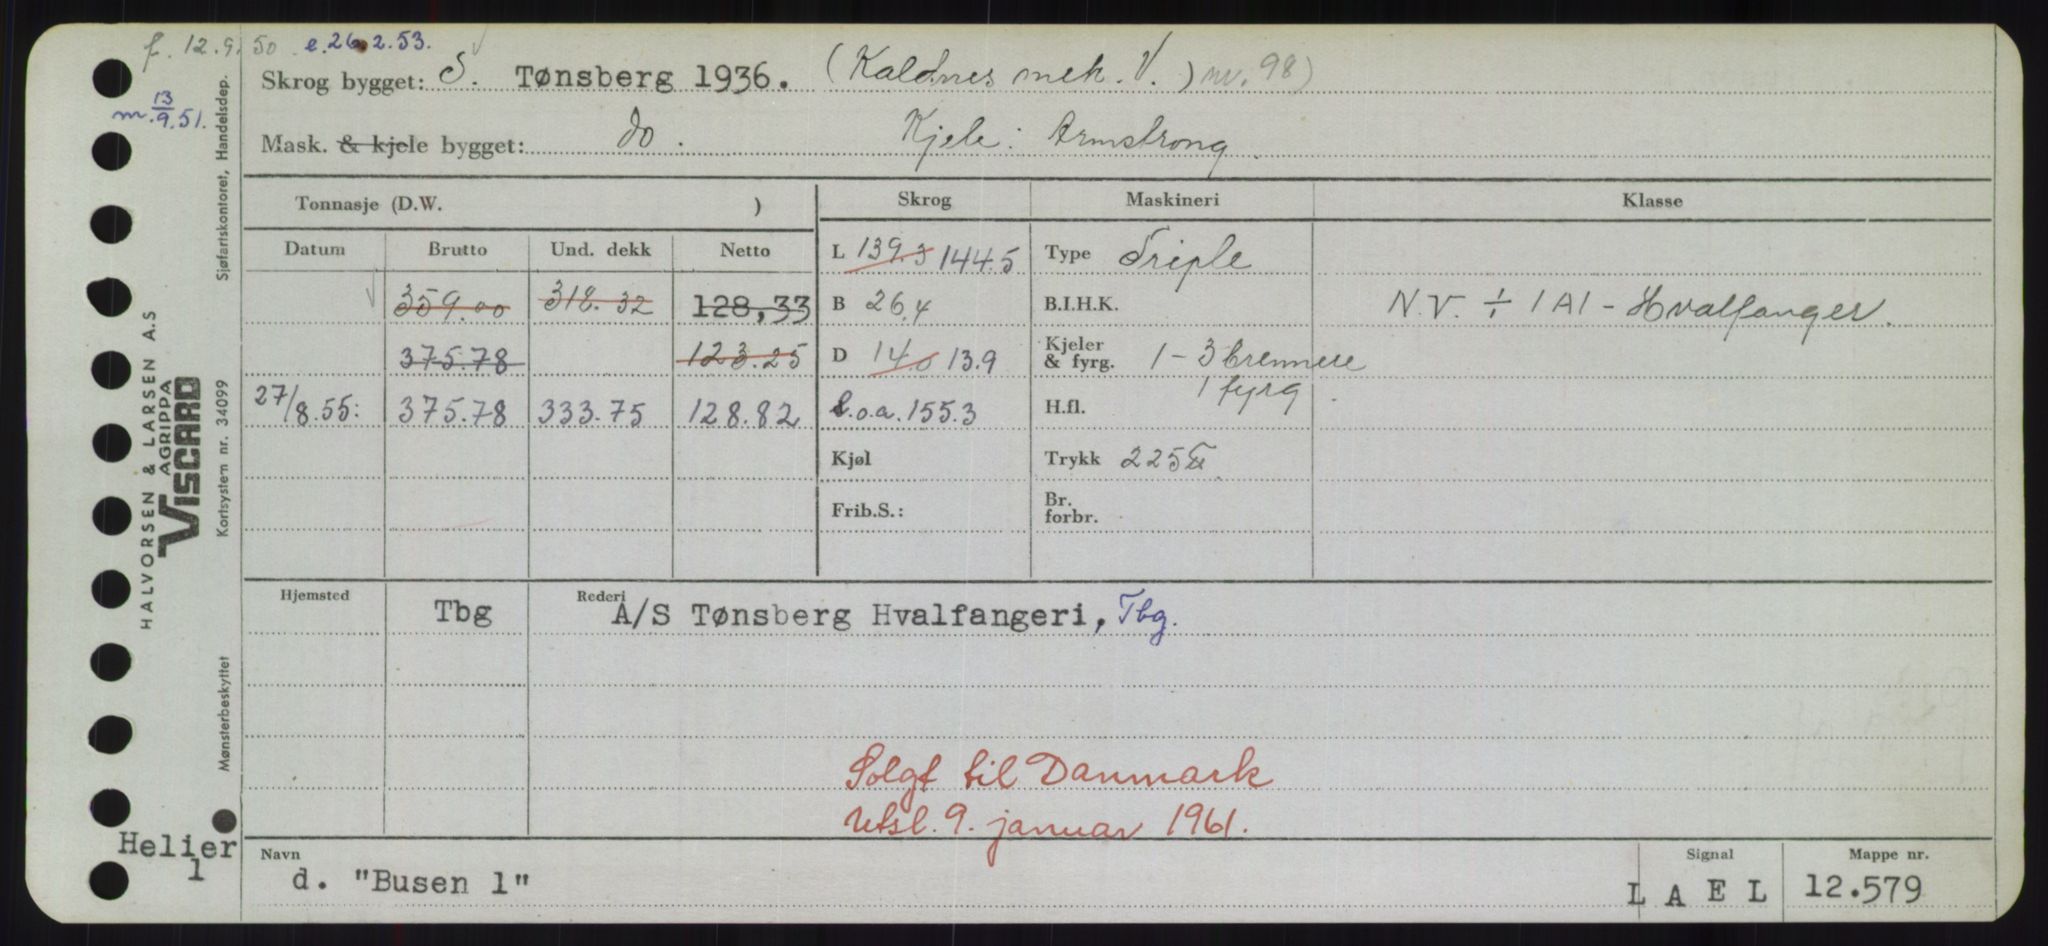 f. 12.9.50 e. 26.2.53.
m. 13/9.51.
Skrog bygget: S. Tønsberg 1936. (Kaldnes mek. V.) nr. 98)
Mask. & kjele bygget: do. Kjele: Armstrong
Tonnasje (D.W. ) Skrog Maskineri Klasse
Datum Brutto Und. dekk Netto L 139.3 144.5 Type Triple
359.00 318.32 128,33 B 26.4 B.I.H.K. N.V. ÷ 1A1 - Hvalfanger.
375.78 123.25 D 14.0 13.9 Kjeler & fyrg. 1 - 3 brennere
1 fyrg.
27/8.55: 375.78 333.75 128.82 L.o.a. 155.3 H.fl.
Kjøl Trykk 225
Frib.S.: Br. forbr.
Hjemsted Tbg Rederi A/S Tønsberg Hvalfangeri, Tbg.
Solgt til Danmark
Utsl. 9. januar 1961.
Navn Signal Mappe nr.
d. "Busen 1" L A E L 12.579
Helier
1
Sjøfartskontoret, Handelsdep.
HALVORSEN & LARSEN A.S
AGRIPPA
VISCARD
Kortsystem nr. 34099
Mønsterbeskyttet